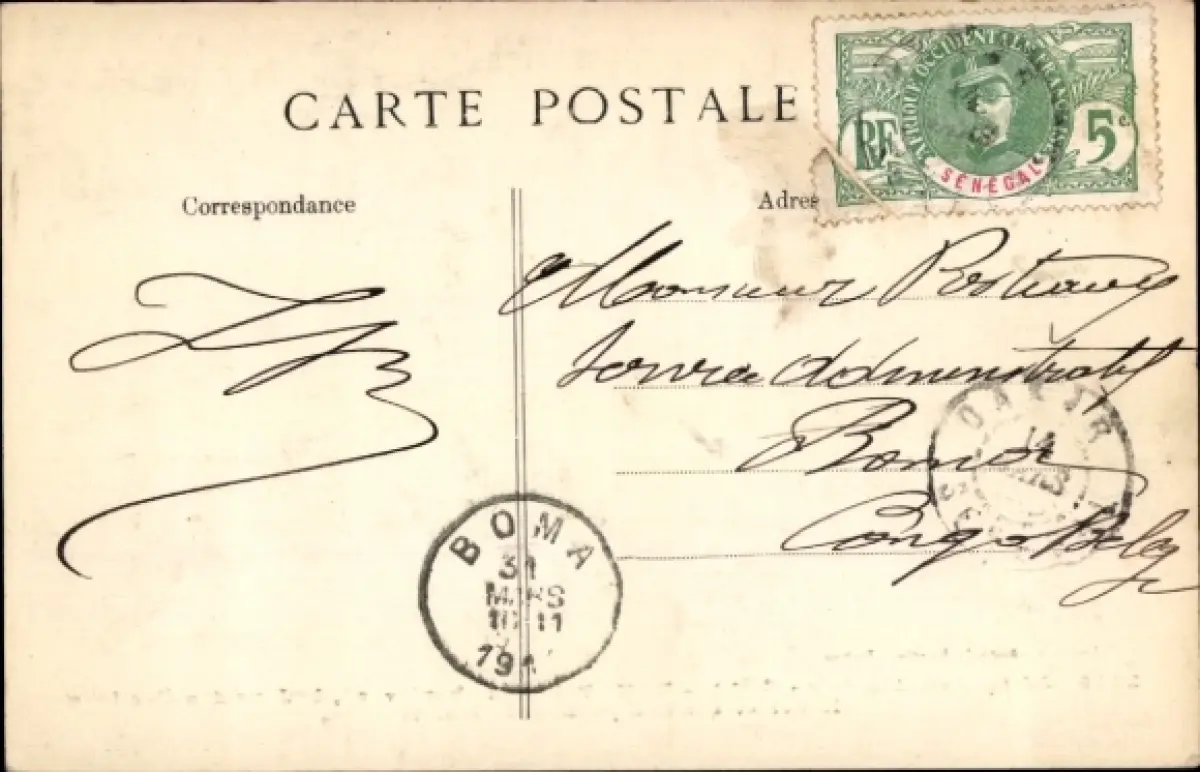 CARTE POSTALE
AFRIQUE OCCIDENTALE FRANÇAISE
RF
5c
SÉNÉGAL
Correspondance
Adres
Monsieur
Service Administratif
Boma
Congo Belge
DAKAR
14
MARS
BOMA
31
MARS
11
19